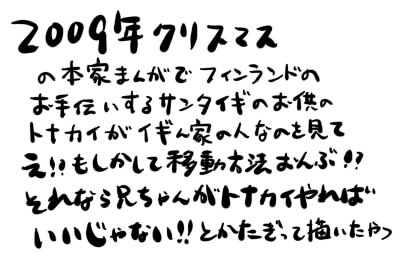 2009年クリスマス
の本家まんがでフィンランドの
お手伝いするサンタイギのお供の
トナカイがイギん家の人なのを見て
え!?もしかして移動方法おんぶ!?
それなら兄ちゃんがトナカイやれば
いいじゃない!!とかたぎって描いたやつ